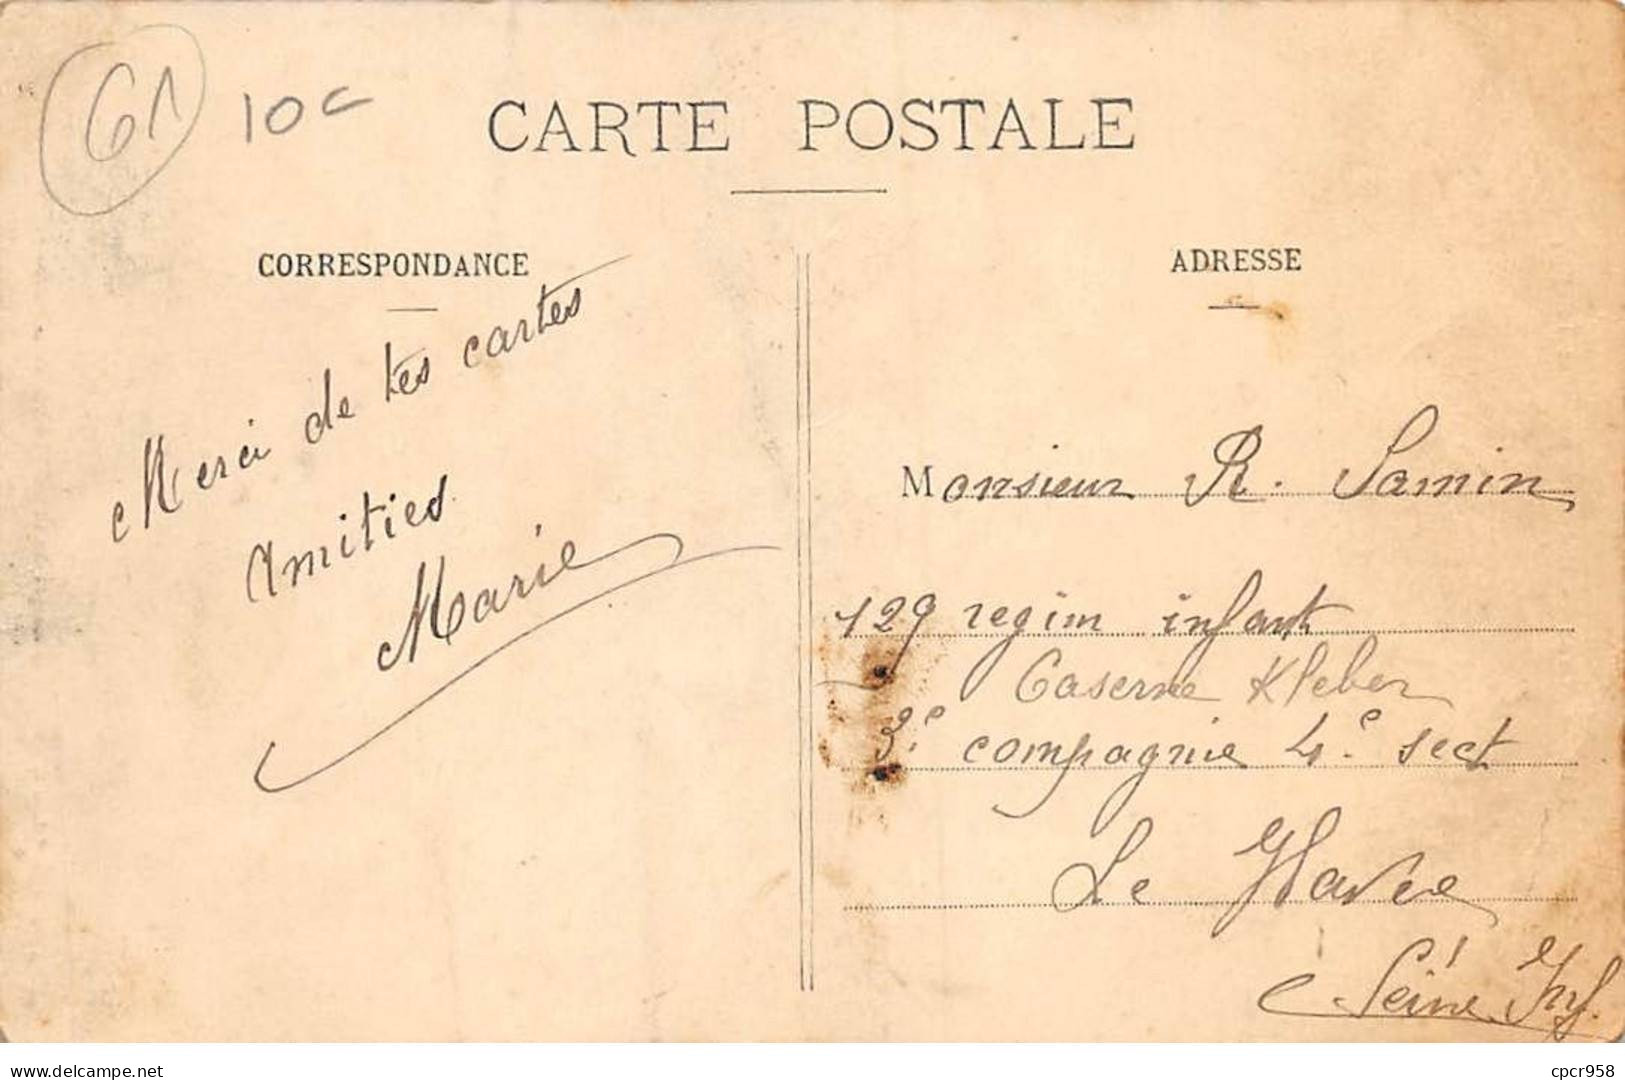 61 10c
CARTE POSTALE
CORRESPONDANCE
Merci de tes cartes
Amitiés
Marie
ADRESSE
Monsieur R. Samin
129 regim infant
Caserne Kleber
3e compagnie 4e sect
Le Havre
Seine Inf.
www.delcampe.net
cpcr958